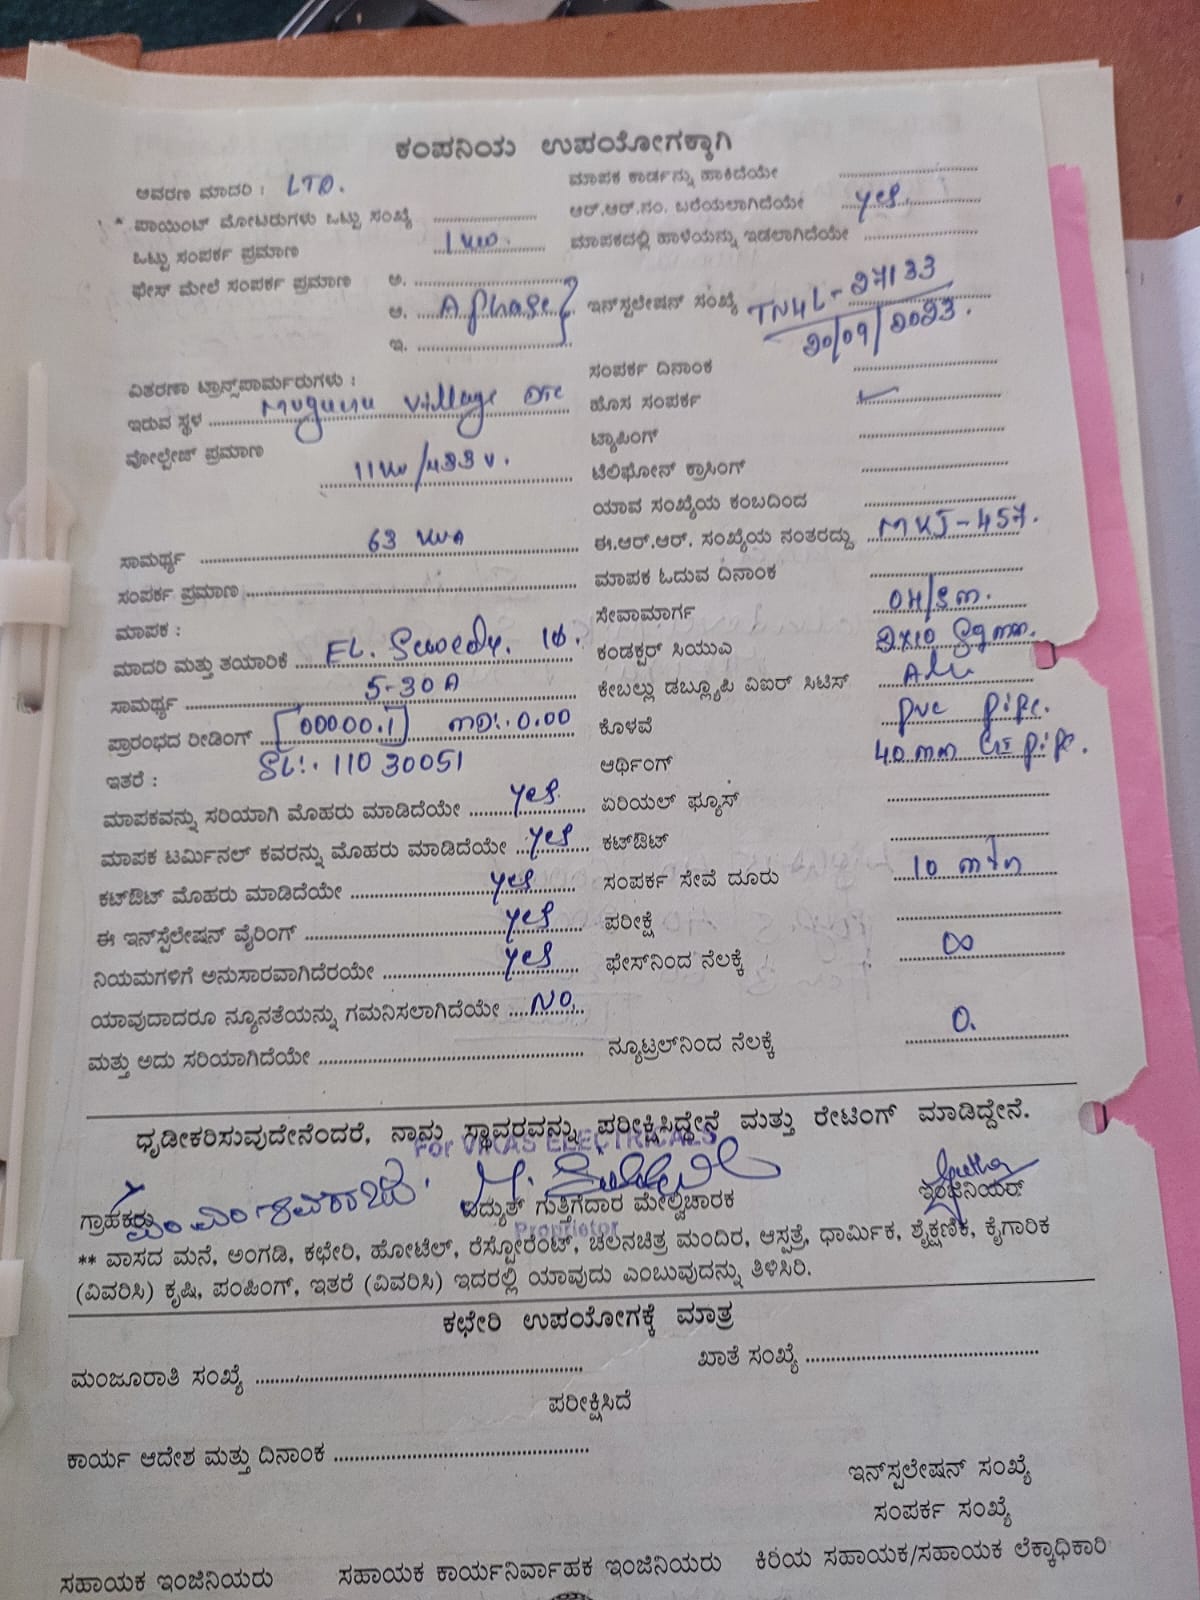 ಕಂಪನಿಯ ಉಪಯೋಗಕ್ಕಾಗಿ
ಆವರಣ ಮಾದರಿ : LTD. ಮಾಪಕ ಕಾರ್ಡನ್ನು ಹಾಕಿದೆಯೇ
* ಪಾಯಿಂಟ್ ಮೋಟರುಗಳು ಒಟ್ಟು ಸಂಖ್ಯೆ ಆರ್.ಆರ್.ನಂ. ಬರೆಯಲಾಗಿದೆಯೇ yes.
ಒಟ್ಟು ಸಂಪರ್ಕ ಪ್ರಮಾಣ 1 kw. ಮಾಪಕದಲ್ಲಿ ಹಾಳೆಯನ್ನು ಇಡಲಾಗಿದೆಯೇ
ಫೇಸ್ ಮೇಲೆ ಸಂಪರ್ಕ ಪ್ರಮಾಣ ಅ.
ಆ. A phase ಇನ್‌ಸ್ಟಲೇಷನ್ ಸಂಖ್ಯೆ TN4L-27133
ಇ. 20/09/2023.
ವಿತರಣಾ ಟ್ರಾನ್ಸ್‌ಪಾರ್ಮರುಗಳು : ಸಂಪರ್ಕ ದಿನಾಂಕ
ಇರುವ ಸ್ಥಳ Muguru village ಹೊಸ ಸಂಪರ್ಕ ✓
ವೋಲ್ಟೇಜ್ ಪ್ರಮಾಣ 11kv/433 v. ಟ್ಯಾಪಿಂಗ್
ಟೆಲಿಫೋನ್ ಕ್ರಾಸಿಂಗ್
ಯಾವ ಸಂಖ್ಯೆಯ ಕಂಬದಿಂದ
ಸಾಮರ್ಥ್ಯ 63 KVA ಈ.ಆರ್.ಆರ್. ಸಂಖ್ಯೆಯ ನಂತರದ್ದು MKJ-457.
ಸಂಪರ್ಕ ಪ್ರಮಾಣ ಮಾಪಕ ಓದುವ ದಿನಾಂಕ
ಮಾಪಕ : ಸೇವಾಮಾರ್ಗ OH/Sm.
ಮಾದರಿ ಮತ್ತು ತಯಾರಿಕೆ EL. Sewedy. ಕಂಡಕ್ಟರ್ ಸಿಯುವಿ 2x10 Sqmm.
ಸಾಮರ್ಥ್ಯ 5-30A ಕೇಬಲ್ಲು ಡಬ್ಲ್ಯೂಪಿ ವಿಐರ್ ಸಿಟಿಸ್
ಪ್ರಾರಂಭದ ರೀಡಿಂಗ್ 00000.1 MD:. 0.00 ಕೊಳವೆ pvc pipe.
ಇತರೆ : SL:. 11030051 ಆರ್ಥಿಂಗ್ 40 mm GI pipe.
ಮಾಪಕವನ್ನು ಸರಿಯಾಗಿ ಮೊಹರು ಮಾಡಿದೆಯೇ yes. ಏರಿಯಲ್ ಫ್ಯೂಸ್
ಮಾಪಕ ಟರ್ಮಿನಲ್ ಕವರನ್ನು ಮೊಹರು ಮಾಡಿದೆಯೇ yes ಕಟ್‌ಔಟ್
ಕಟ್‌ಔಟ್ ಮೊಹರು ಮಾಡಿದೆಯೇ yes ಸಂಪರ್ಕ ಸೇವೆ ದೂರು 10 mtr
ಈ ಇನ್‌ಸ್ಟೆಲೇಷನ್ ವೈರಿಂಗ್ yes ಪರೀಕ್ಷೆ
ನಿಯಮಗಳಿಗೆ ಅನುಸಾರವಾಗಿದೆರಯೇ yes ಫೇಸ್‌ನಿಂದ ನೆಲಕ್ಕೆ ∞
ಯಾವುದಾದರೂ ನ್ಯೂನತೆಯನ್ನು ಗಮನಿಸಲಾಗಿದೆಯೇ NO.
ಮತ್ತು ಅದು ಸರಿಯಾಗಿದೆಯೇ ನ್ಯೂಟ್ರಲ್‌ನಿಂದ ನೆಲಕ್ಕೆ 0.
ಧೃಡೀಕರಿಸುವುದೇನೆಂದರೆ, ನಾನು ಸ್ಥಾವರವನ್ನು ಪರೀಕ್ಷಿಸಿದ್ದೇನೆ ಮತ್ತು ರೇಟಿಂಗ್ ಮಾಡಿದ್ದೇನೆ.
For VIKAS ELECTRICALS
ಗ್ರಾಹಕರು ವಿದ್ಯುತ್ ಗುತ್ತಿಗೆದಾರ ಮೇಲ್ವಿಚಾರಕ ಇಂಜಿನಿಯರ್
Proprietor
** ವಾಸದ ಮನೆ, ಅಂಗಡಿ, ಕಛೇರಿ, ಹೋಟೆಲ್, ರೆಸ್ಟೋರೆಂಟ್, ಚಲನಚಿತ್ರ ಮಂದಿರ, ಆಸ್ಪತ್ರೆ, ಧಾರ್ಮಿಕ, ಶೈಕ್ಷಣಿಕ, ಕೈಗಾರಿಕೆ
(ವಿವರಿಸಿ) ಕೃಷಿ, ಪಂಪಿಂಗ್, ಇತರೆ (ವಿವರಿಸಿ) ಇದರಲ್ಲಿ ಯಾವುದು ಎಂಬುವುದನ್ನು ತಿಳಿಸಿರಿ.
ಕಛೇರಿ ಉಪಯೋಗಕ್ಕೆ ಮಾತ್ರ
ಮಂಜೂರಾತಿ ಸಂಖ್ಯೆ ಖಾತೆ ಸಂಖ್ಯೆ
ಪರೀಕ್ಷಿಸಿದೆ
ಕಾರ್ಯ ಆದೇಶ ಮತ್ತು ದಿನಾಂಕ
ಇನ್‌ಸ್ಪಲೇಷನ್ ಸಂಖ್ಯೆ
ಸಂಪರ್ಕ ಸಂಖ್ಯೆ
ಸಹಾಯಕ ಇಂಜಿನಿಯರು ಸಹಾಯಕ ಕಾರ್ಯನಿರ್ವಾಹಕ ಇಂಜಿನಿಯರು ಕಿರಿಯ ಸಹಾಯಕ/ಸಹಾಯಕ ಲೆಕ್ಕಾಧಿಕಾರಿ